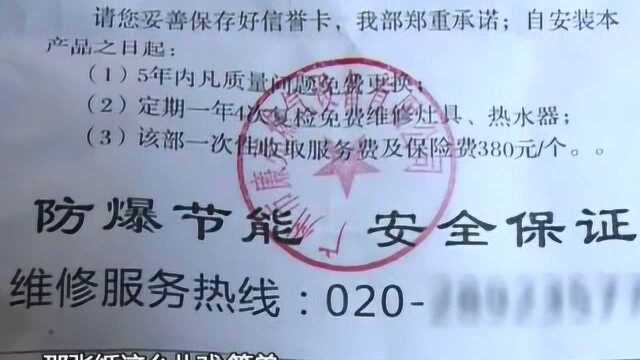 请您妥善保存好信誉卡，我部郑重承诺；自安装本
产品之日起：
（1）5年内凡质量问题免费更换；
（2）定期一年4次复检免费维修灶具、热水器；
（3）该部一次性收取服务费及保险费380元/个。。
防爆节能 安全保证
维修服务热线：020-